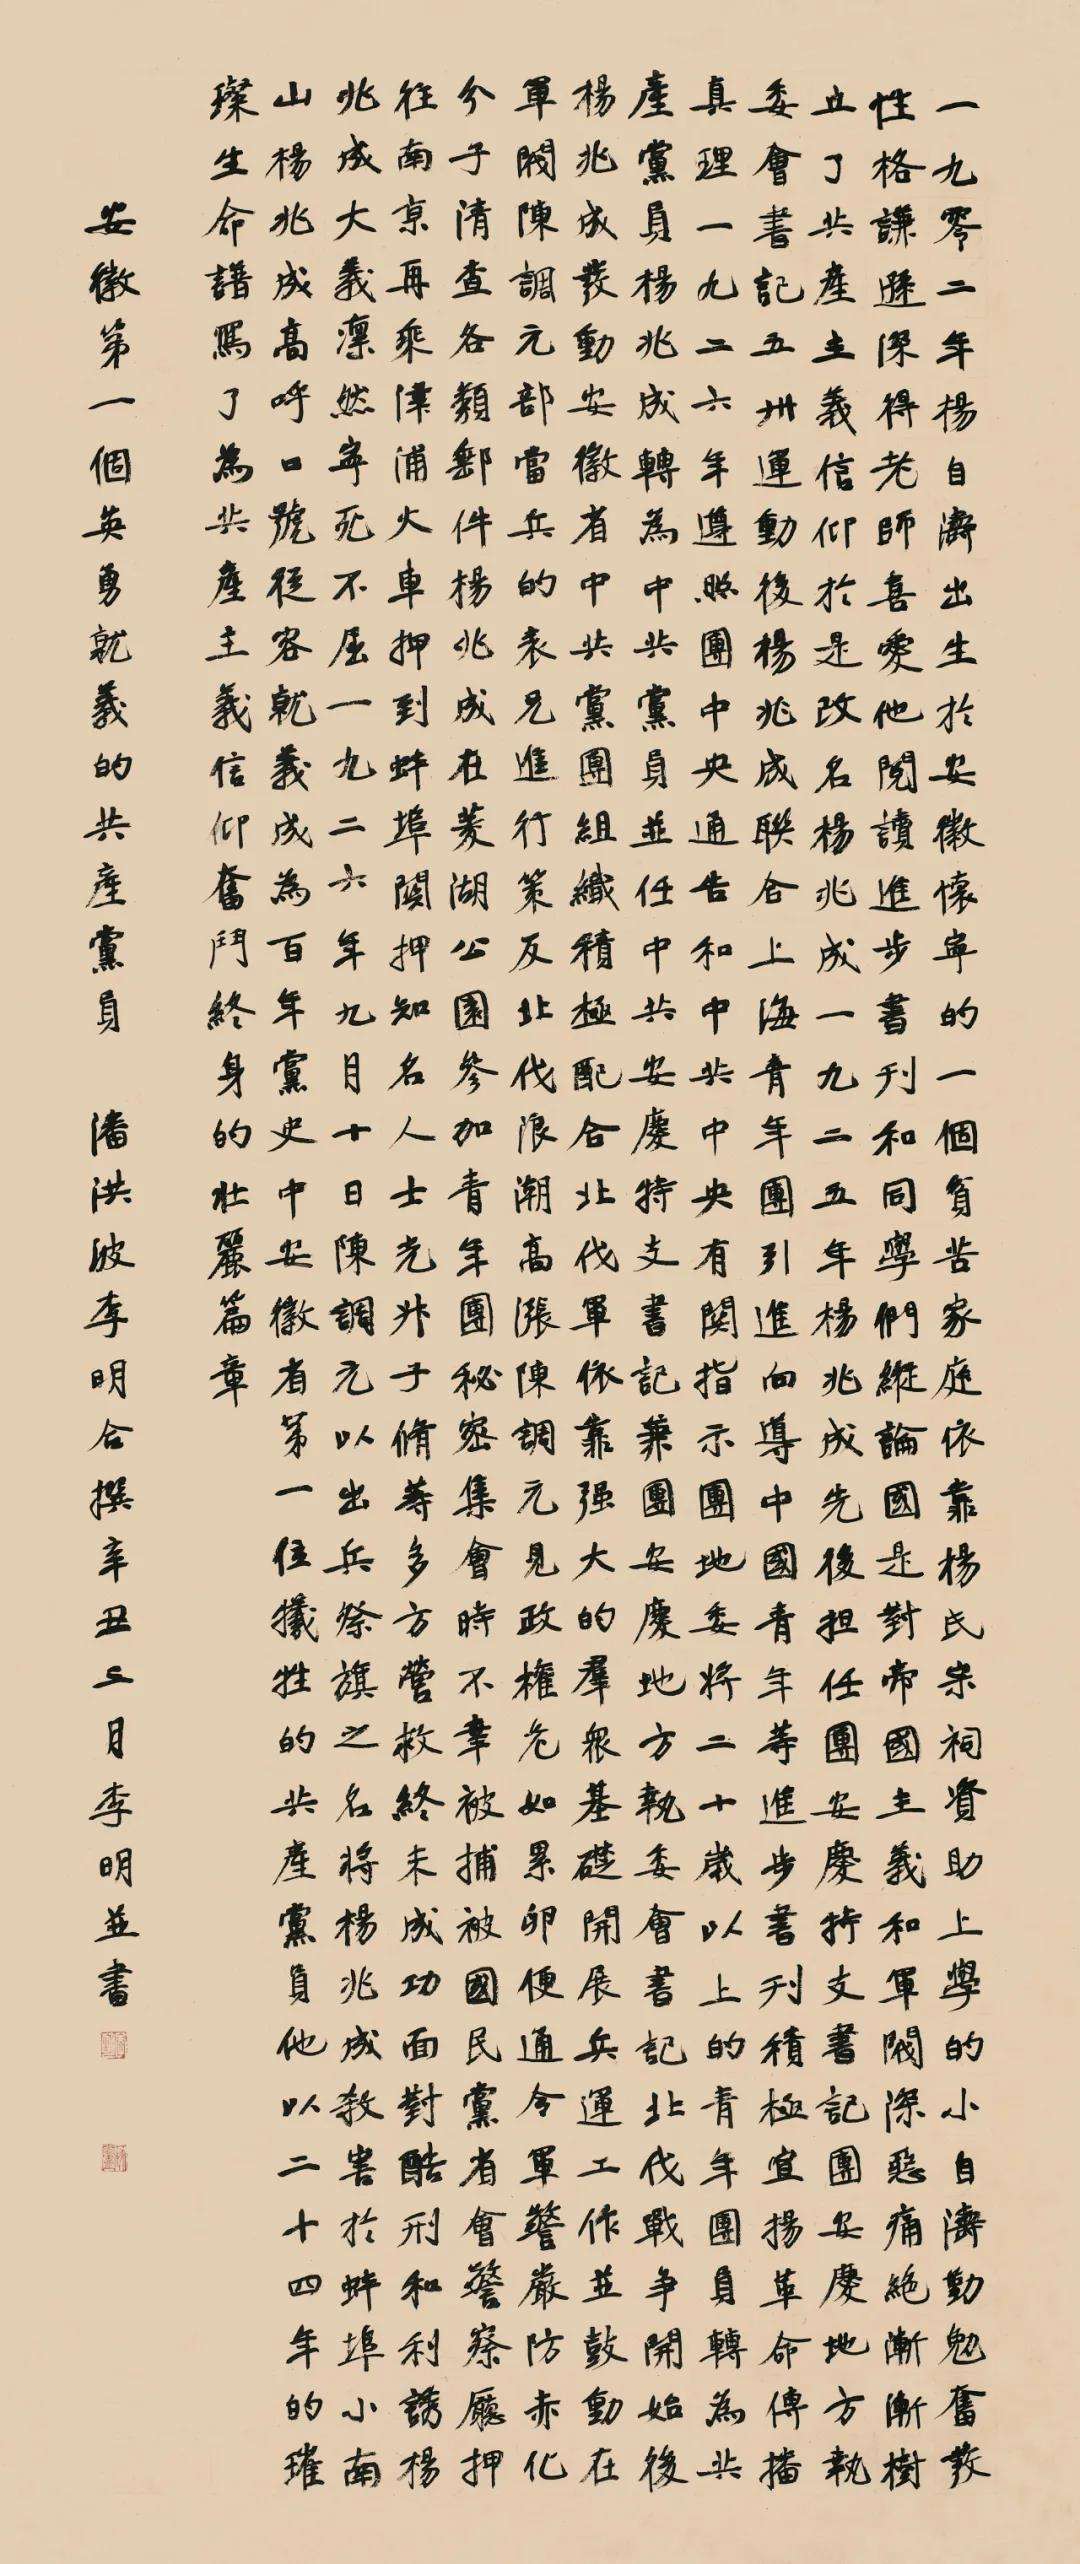 一九零二年楊自濟出生於安徽懷寧的一個貧苦家庭依靠楊氏宗祠資助上學的小自濟勤勉奮發
性格謙遜深得老師喜愛他閱讀進步書刊和同學們縱論國是對帝國主義和軍閥深惡痛絕漸漸樹
立了共產主義信仰於是改名楊兆成一九二五年楊兆成先後担任團安慶特支書記團安慶地方執
委會書記五卅運動後楊兆成聯合上海青年團引進向導中國青年等進步書刊積極宣揚革命傳播
真理一九二六年遵照團中央通告和中共中央有関指示團團地委将二十歲以上的青年團員轉為共
產黨員楊兆成轉為中共黨員並任中共安慶特支書記兼團安慶地方執委會書記北伐戰争開始後
楊兆成發動安徽省中共黨團組織積極配合北伐軍依靠强大的羣眾基礎開展兵運工作並鼓動在
軍閥陳調元部當兵的表兄進行策反北伐浪潮高漲陳調元見政權危如累卵便通令軍警嚴防赤化
分子清查各類郵件楊兆成在菱湖公園參加青年團秘密集會時不幸被捕被國民黨省會警察廳押
往南京再乘津浦火車押到蚌埠関押知名人士光昇子脩等多方營救終未成功面對酷刑和利誘楊
兆成大義凛然寧死不屈一九二六年九月十日陳調元以出兵祭旗之名将楊兆成殺害於蚌埠小南
山楊兆成高呼口號從容就義成為百年黨史中安徽省第一位犧牲的共產黨員他以二十四年的璀
璨生命譜寫了為共產主義信仰奮鬥終身的壯麗篇章
安徽第一個英勇就義的共產黨員 潘洪波李明合撰辛丑二月李明並書